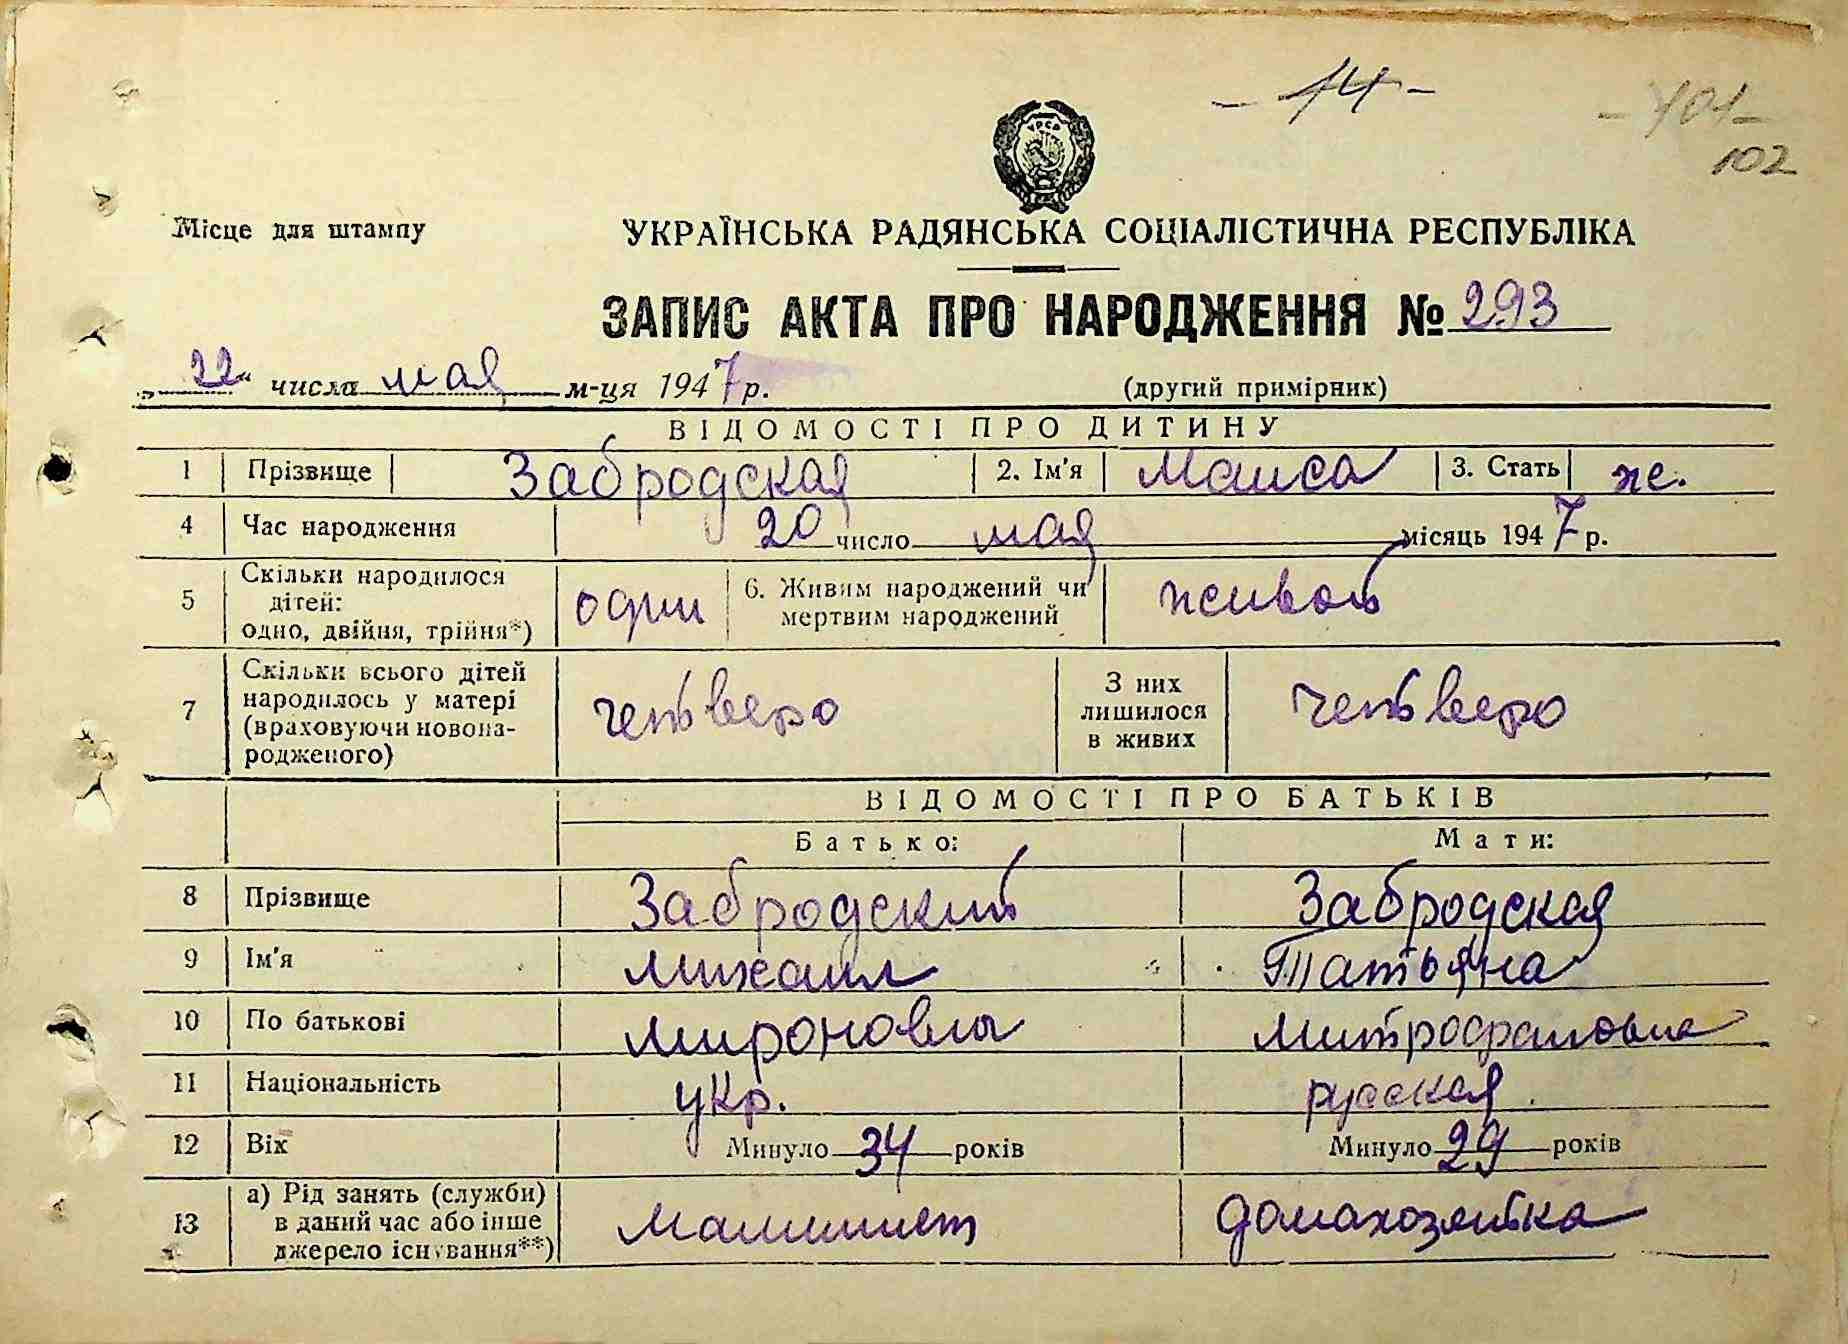 - 14 -
- 101 -
102
УРСР
Місце для штампу
УКРАЇНСЬКА РАДЯНСЬКА СОЦІАЛІСТИЧНА РЕСПУБЛІКА
ЗАПИС АКТА ПРО НАРОДЖЕННЯ № 293
„22“ числа мая м-ця 1947 р. (другий примірник)
ВІДОМОСТІ ПРО ДИТИНУ
1 Прізвище Забродская 2. Ім'я Маиса 3. Стать ж.
4 Час народження 20 число мая місяць 1947 р.
5 Скільки народилося
дітей:
одно, двійня, трійня*) одни 6. Живим народжений чи
мертвим народжений живой
7 Скільки всього дітей
народилось у матері
(враховуючи новона-
родженого) четверо З них
лишилося
в живих четверо
ВІДОМОСТІ ПРО БАТЬКІВ
Батько: Мати:
8 Прізвище Забродский Забродская
9 Ім'я Михаил Татьяна
10 По батькові Миронович Митрофановна
11 Національність укр. русская
12 Вік Минуло 34 років Минуло 29 років
13 а) Рід занять (служби)
в даний час або інше
джерело існування**) Машинист домахозяйка